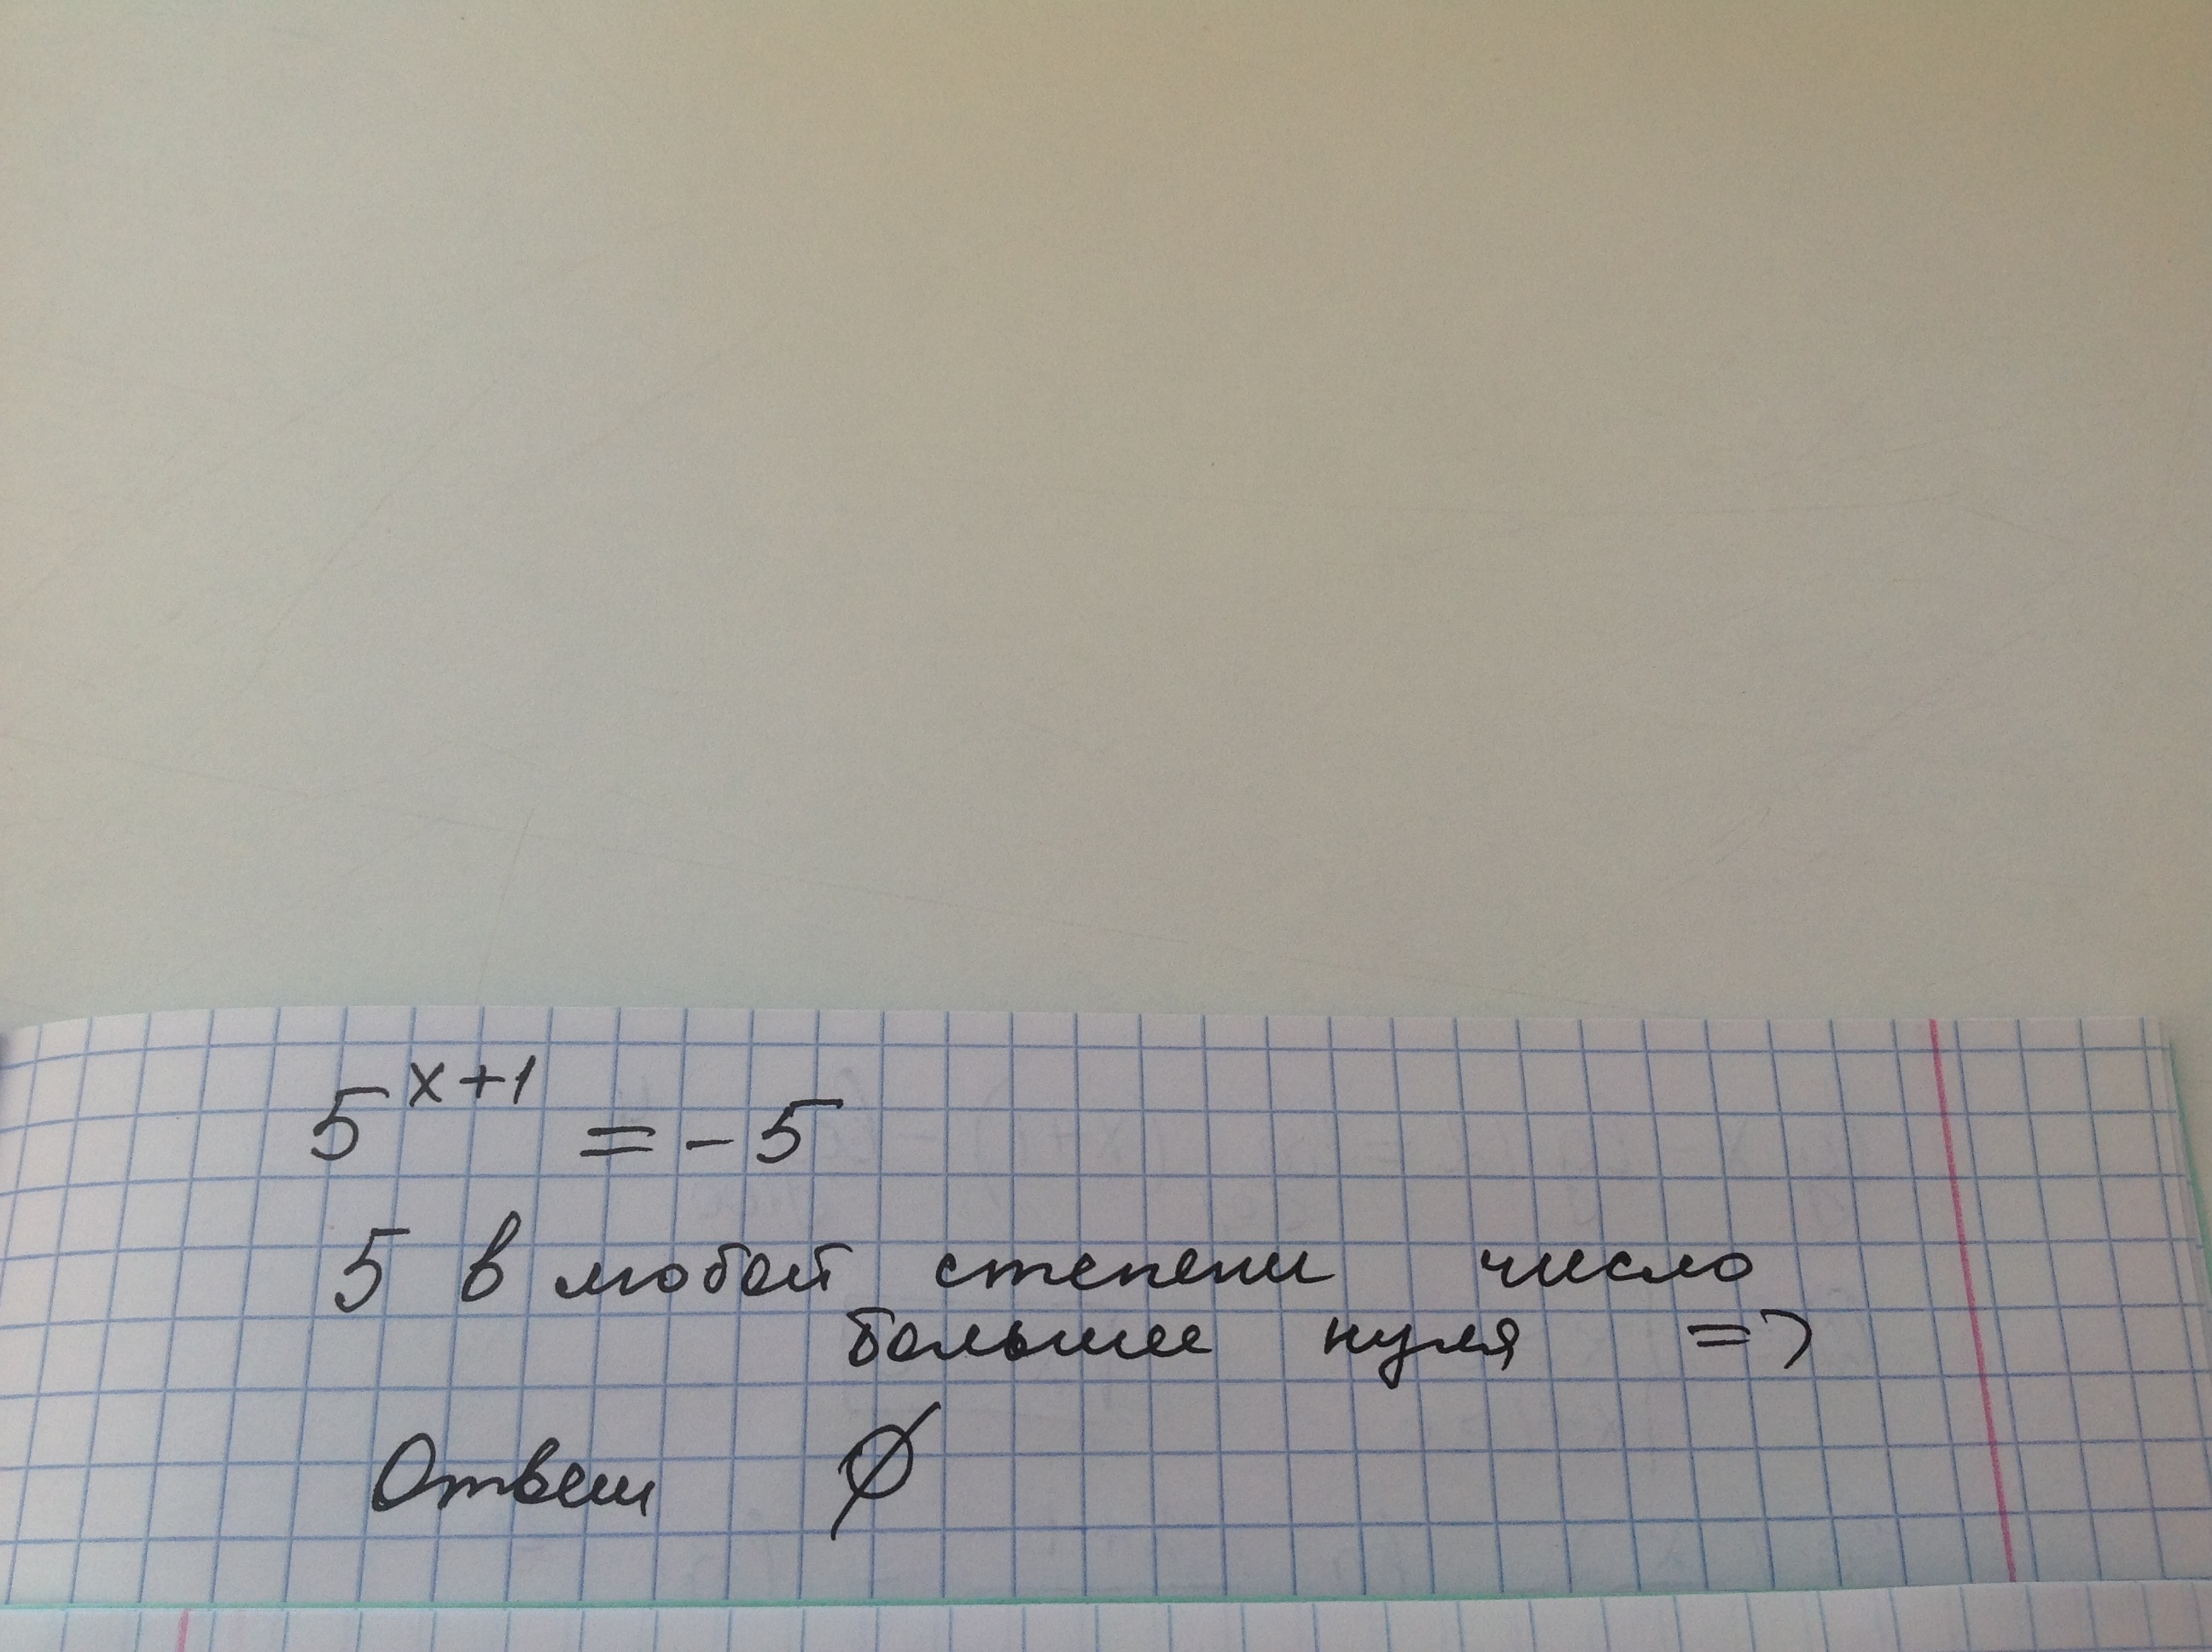 5^{x+1} = -5
5 в любой степени число
большее нуля =>
Ответ ∅